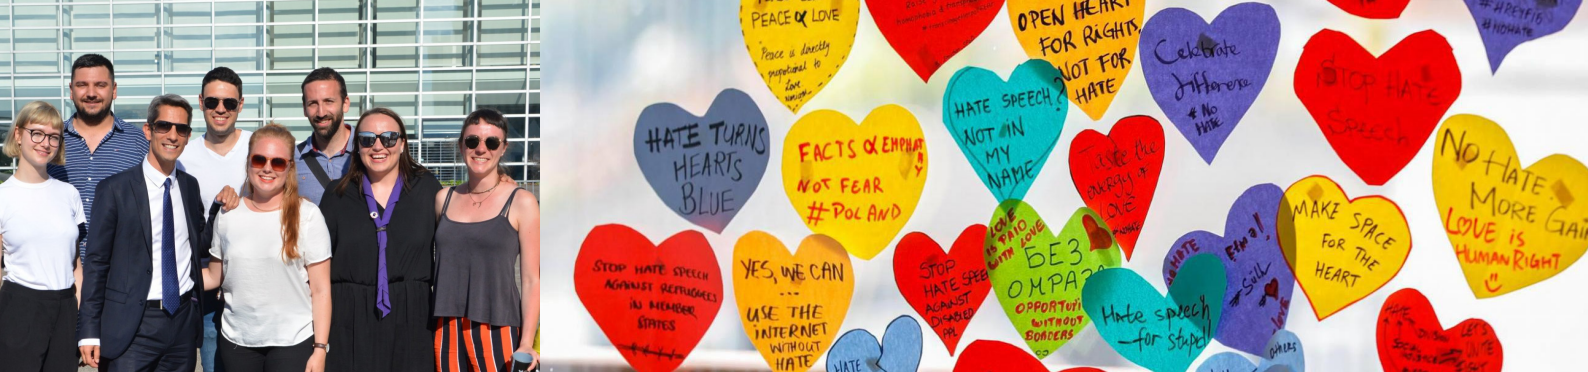 PEACE & LOVE
Peace is directly
propotional to
Love
OPEN HEART
FOR RIGHTS,
NOT FOR
HATE
Celebrate
difference
# NO
HATE
#NOHATE
STOP HATE
Speech
HATE SPEECH?
NOT IN
MY
NAME
HATE TURNS
HEARTS
BLUE
FACTS & EMPHATHY
NOT FEAR
#POLAND
Taste the
energy of
LOVE
NO HATE
MORE GAIN
LOVE is
HUMAN RIGHT
MAKE SPACE
FOR THE
HEART
STOP HATE SPEECH
AGAINST REFUGEES
IN MEMBER
STATES
YES, WE CAN
...
USE THE
INTERNET
WITHOUT
HATE
STOP
HATE SPEE
AGAINST
DISABLED
PPL
LOVE
IS PAID
WITH LOVE
БЕЗ
ОМРАЗА
OPPORTUNI
WITHOUT
BORDERS
NO HATE
Still
LOVE
Hate speech
-for stupid
HATE
others
LET'S